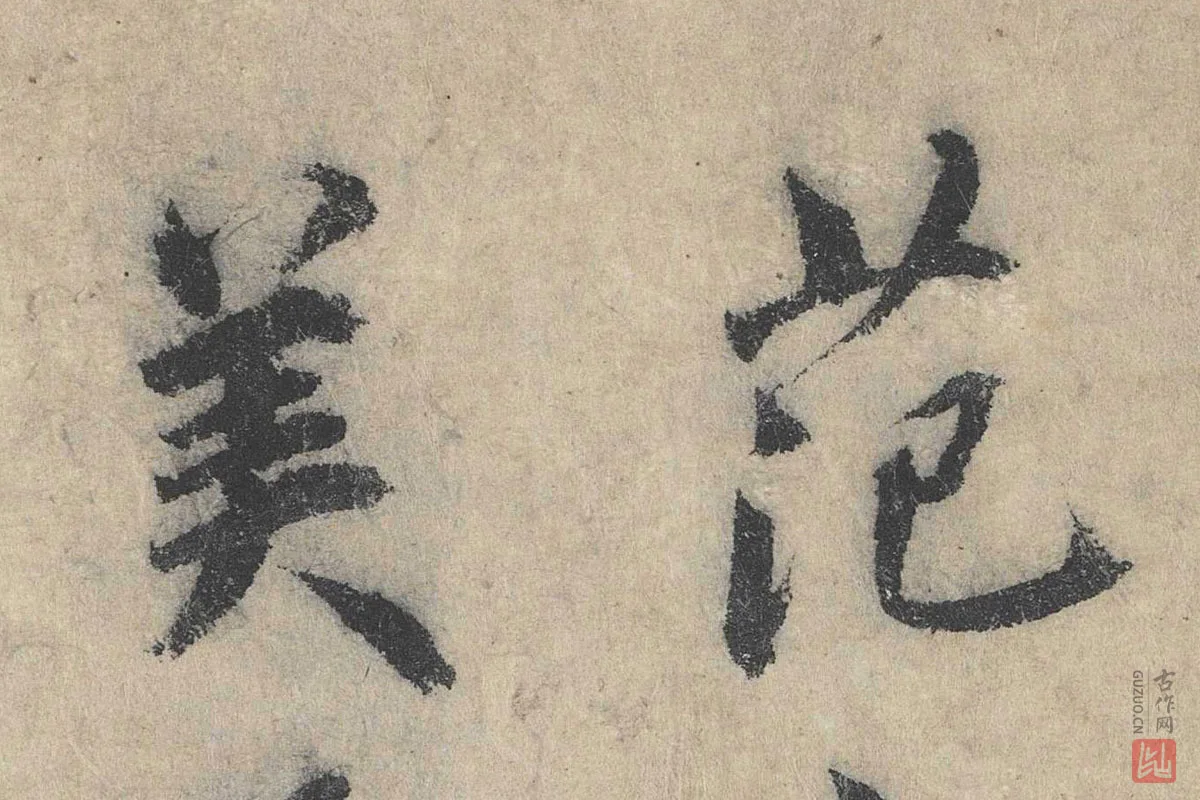 范
美
古作网
GUZUO.CN